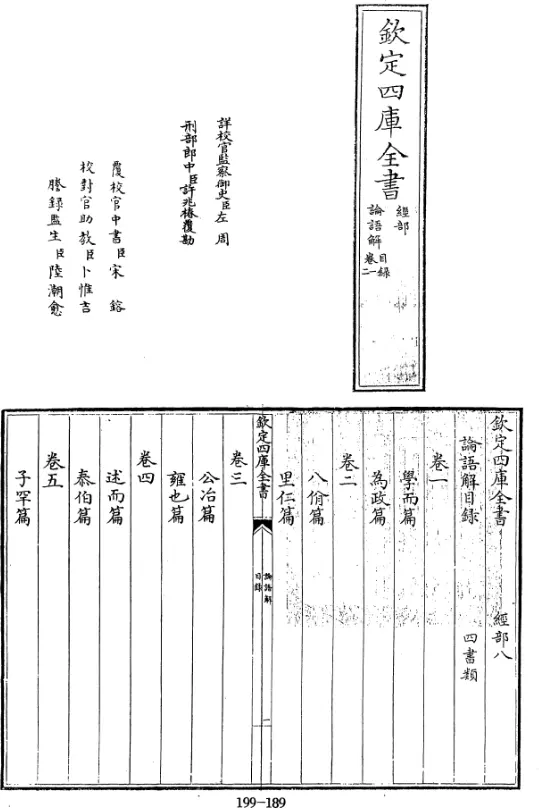 欽定四庫全書
經部
論語解
目錄
卷一
二
詳校官監察御史臣左周
刑部郎中臣許兆椿覆勘
覆校官中書臣宋鎔
校對官助教臣卜惟吉
謄錄監生臣陸潮愈
欽定四庫全書 經部八
論語解目錄 四書類
卷一
學而篇
為政篇
卷二
八佾篇
里仁篇
欽定四庫全書
論語解
目錄
一
卷三
公冶篇
雍也篇
卷四
述而篇
泰伯篇
卷五
子罕篇
199-189